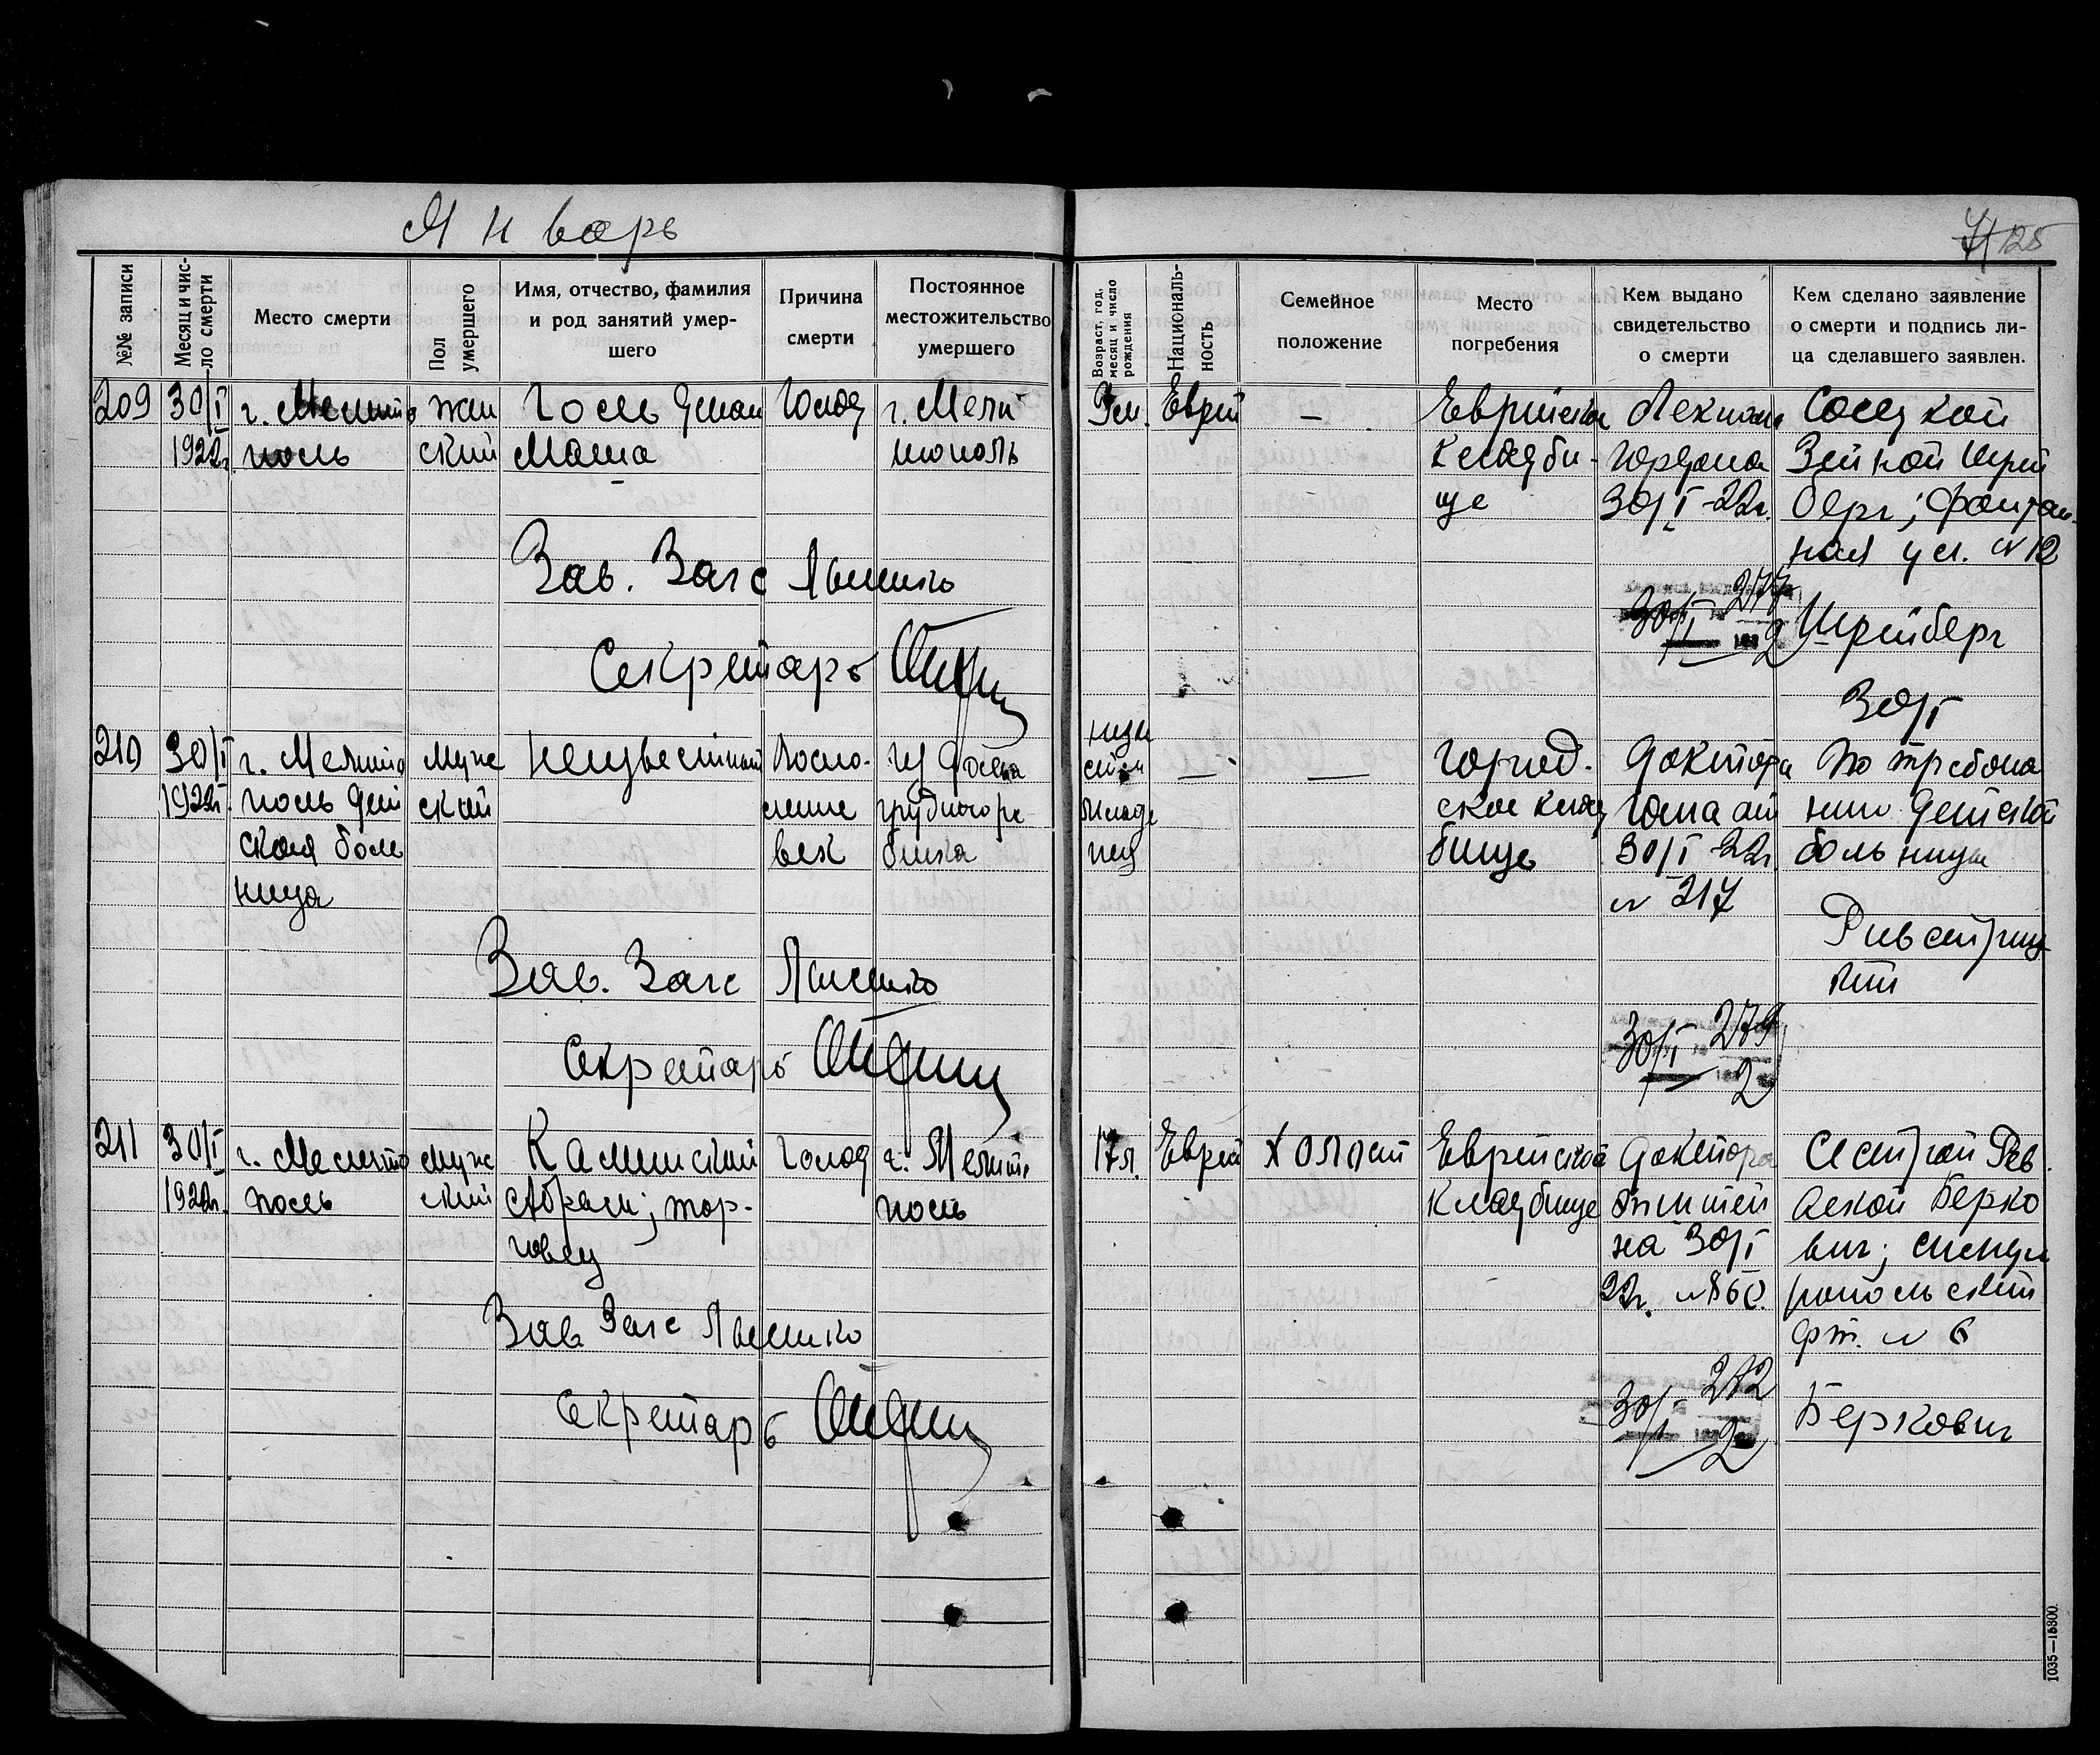 Январь
125
№№ записи
Месяц и чис-
ло смерти
Место смерти
Пол
умершего
Имя, отчество, фамилия
и род занятий умер-
шего
Причина
смерти
Постоянное
местожительство
умершего
Возраст, год,
месяц и число
рождения
Националь-
ность
Семейное
положение
Место
погребения
Кем выдано
свидетельство
о смерти
Кем сделано заявление
о смерти и подпись ли-
ца сделавшего заявлен.
209
30/I
1922г.
г. Мелито
поль
жен
ский
Маша
Голод
г. Мели
тополь
Еврей
—
Еврейское
кладби-
ще
Лекпома
Гордона
30/I-22г.
Соседкой
берг; Фонтан
ная ул. №12
277
30/I
2
Шрейберг
30/I
Зав. Загс
Секретарь
210
30/I
1922г.
г. Мелито
поль Дет
ская боль
ница
Муж
ской
Неизвестный
Воспа-
ление
век
из дома
грудного ре
бенка
неизве
стен
младе
нец
—
—
город-
ское клад
бище
Доктора
30/I-22г.
№ 217
По требова
нию детской
больницы
279
30/I
2
Зав. Загс
Секретарь
211
30/I
1922г.
г. Мелито
поль
муж
ской
Каминский
Абрам; тор-
говец
голод
г. Мелито
поль
17л.
Еврей
холост
Еврейское
кладбище
Доктора
на 30/I
22г. №860.
Сестрой Рев
еккой Берко
вич; Симфе
ропольский
№ 6
272
30/I
2
Беркович
Зав. Загс
Секретарь
1035—15800.